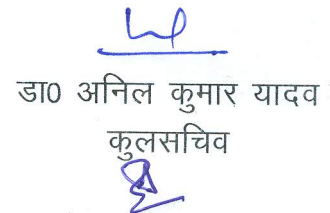 डा0 अनिल कुमार यादव
कुलसचिव